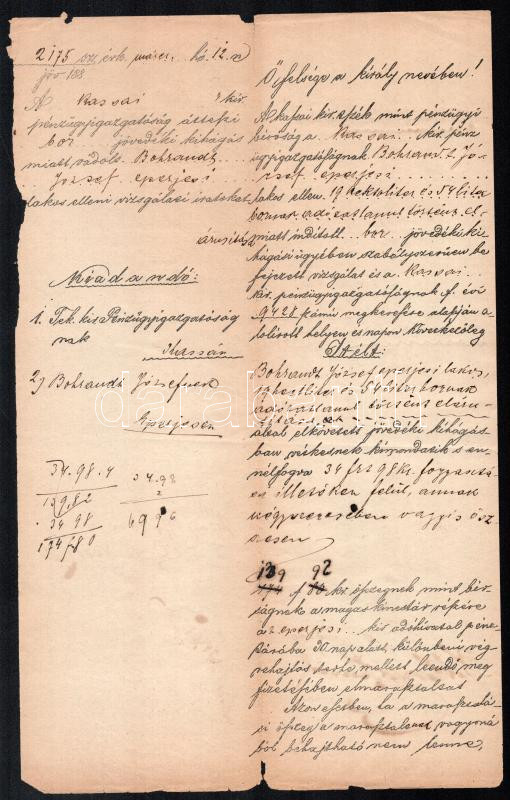 2175 sz. érk. márcz. hó. 12. n
jöv 188
A Kassai kir.
pénzügyigazgatóság átteszi
bor jövedéki kihágás
miatt vádolt Bohrandt
József eperjesi
lakos elleni vizsgálati iratokat
árusítás
Kiadandó:
1. Tek. kir. Pénzügyigazgatóság
nak
Kassán
2) Bohrandt Józsefnek
Eperjesen
34.98.4
139,82
34 98
174,80
34.98
2
69 96
Ő felsége a király nevében!
A kassai kir. tszék mint pénzügyi
biróság a Kassai kir. pénz
ügyigazgatóságnak Bohrandt Jó
zsef eperjesi
lakos ellen 19 hektoliter és 54 liter
bornak adózatlanul történt el
miatt inditott bor jövedéki ki
hágási ügyében szabályszerüen be
fejezett vizsgálat és a Kassai
kir. pénzügyigazgatóságnak f. évi
9428 számu megkeresése alapján a
tolirott helyen és napon következőleg
Itélt:
Bohrandt József eperjesi lakos,
19 hectliter és 54 liter bornak
adózatlanul történt elár
által elkövetett jövedéki kihágás
ban vétkesnek kimondatik s en
nélfogva 34 frt 98 kr. fogyasztá
si illetéken felül, annak
négyszeresében vagyis ösz
szesen
139 92
f kr. öszegnek mint bir
ságnak a magas kincstár részére
az eperjesi kir. adóhivatal pénz
tárába 30 nap alatt, különbeni vég
rehajtás terhe mellett leendő meg
fizetésében elmarasztaltat
Azon esetben, ha a marasztalá
si öszeg a marasztalt vagyoná
ból behajtható nem lenne,
darabanth.com